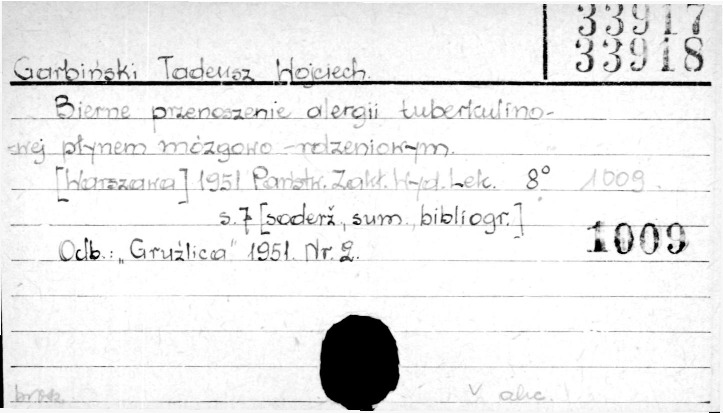 33917
33918
Garbiński Tadeusz Wojciech.
Bierne przenoszenie alergii tuberkulino-
wej płynem mózgowo-rdzeniowym.
[Warszawa] 1951 Państw. Zakł. Wyd. Lek. 8° 1009.
s. 7 [soderž., sum., bibliogr.]
1009
Odb.: „Gruźlica" 1951. Nr. 2.
brosz. V akc.